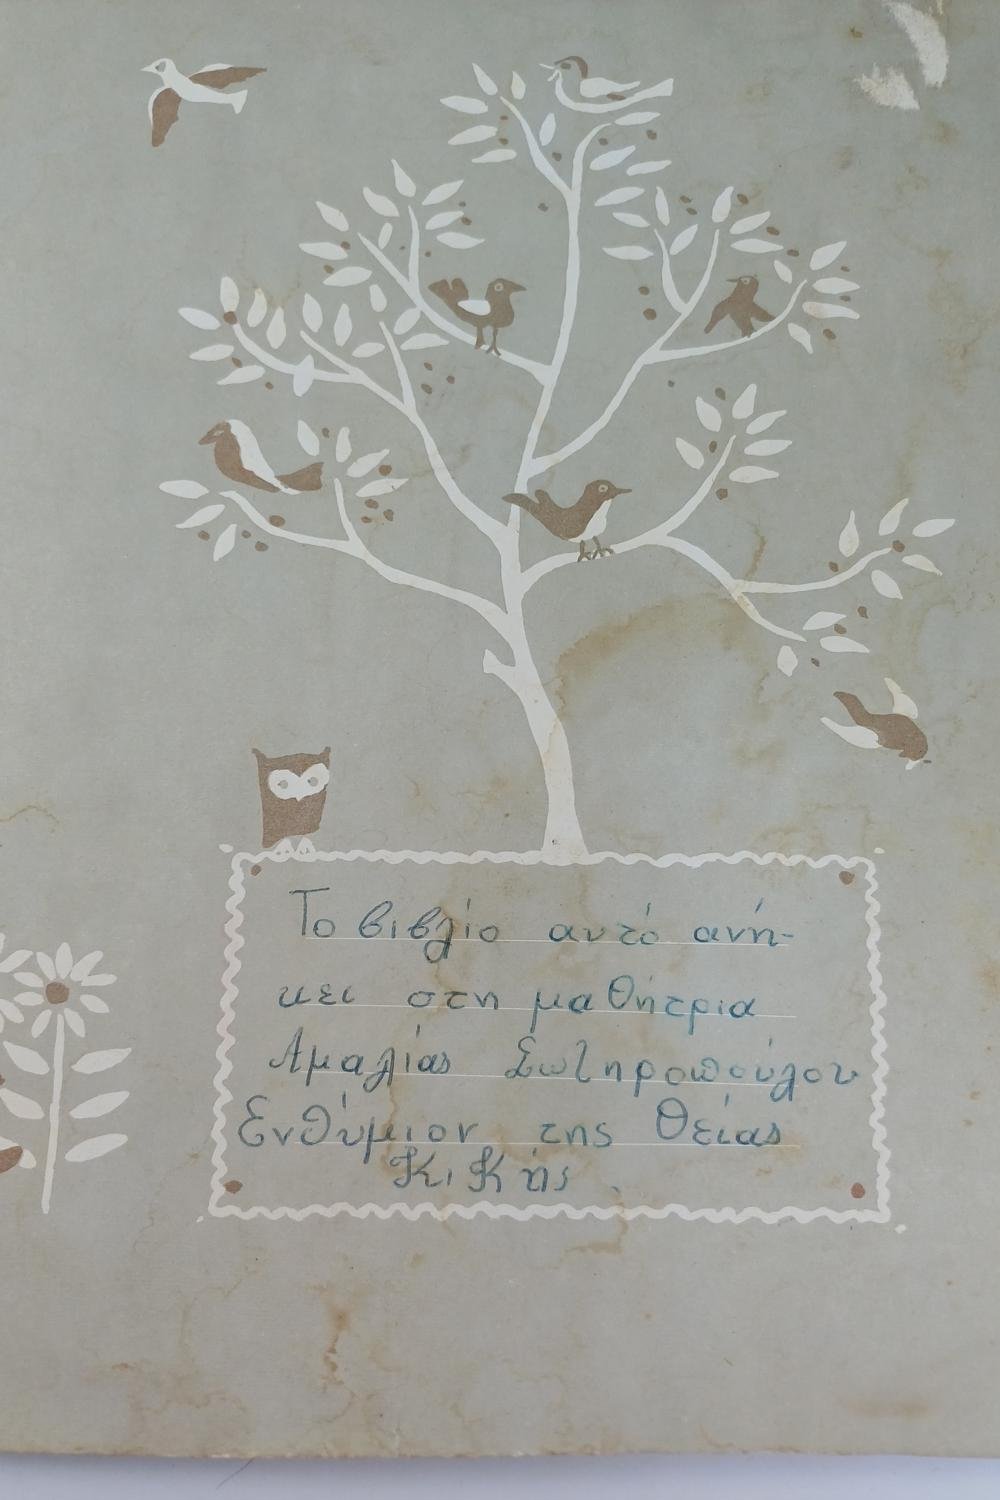 Το βιβλίο αυτό ανή-
κει στη μαθήτρια
Αμαλίας Σωτηροπούλου
Ενθύμιον της Θείας
Κικής.